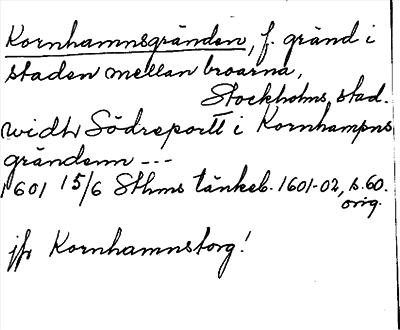 Kornhamnsgränden, f. gränd i
staden mellan broarna,
Stockholms stad.
widh Södreportt i Kornhampns
grändenn ---
1601 15/6 Sthms tänkeb. 1601-02, s. 60.
orig.
jfr Kornhamnstorg!